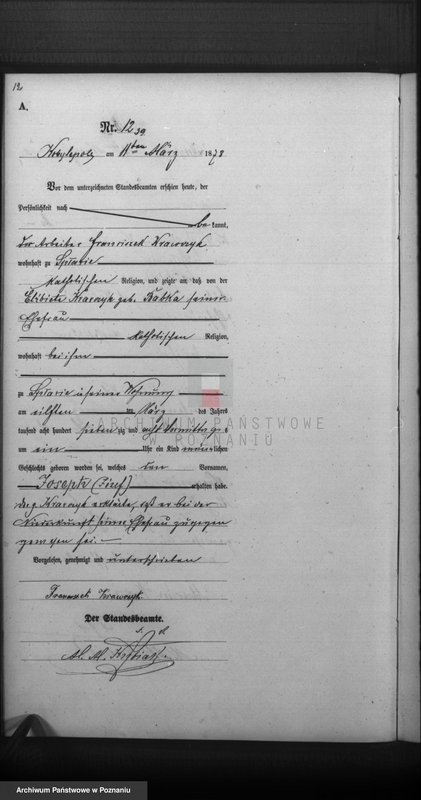 12
A.
Nr. 12
Kobylepole am 11ten März 1878
Vor dem unterzeichneten Standesbeamten erschien heute, der
Persönlichkeit nach
be kannt,
der Arbeiter Franciszek Krawczyk
wohnhaft zu
katholischen Religion, und zeigte an, daß von der
geb. Babka seiner
Ehefrau
katholischen Religion,
wohnhaft bei ihm
zu in seiner Wohnung
am eilften März des Jahres
tausend acht hundert sieben zig und acht Vormittags
um ein Uhr ein Kind männlichen
Geschlechts geboren worden sei, welches den Vornamen
Joseph (Józef) erhalten habe.
Krawczyk erklärte, daß er bei der
Niederkunft seiner Ehefrau zugegen
gewesen sei.—
Vorgelesen, genehmigt und unterschrieben
Franciszek Krawczyk
Der Standesbeamte.
ARCHIWUM PAŃSTWOWE
W POZNANIU
Archiwum Państwowe w Poznaniu